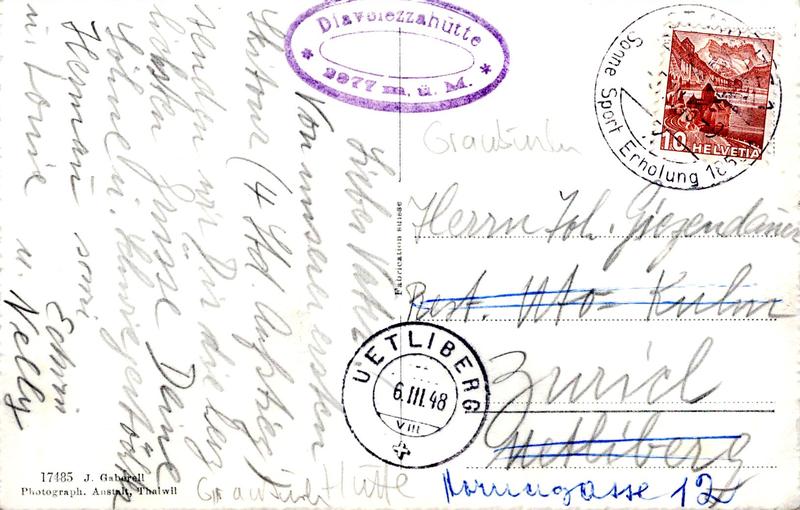 Diavolezzahütte
* 2977 m. ü. M. *
Sonne Sport Erholung 185
10 HELVETIA
Graubünden
Lieber Vater
Von unserer ersten
Skitour (4 Std. Aufstieg)
senden wir Dir die herz
lichsten Grüsse Deine
Söhne u. Schwiegertöchter
Herman sowie
m. Louise u. Nelly
Fabrication Suisse
Herrn Joh. Giezendanner
Rest. Uto-Kulm
Zürich
Uetliberg
Hornergasse 12
UETLIBERG
6.III.48
VIII
17485 J. Gaberell
Photograph. Anstalt, Thalwil
Graubünden Hütte